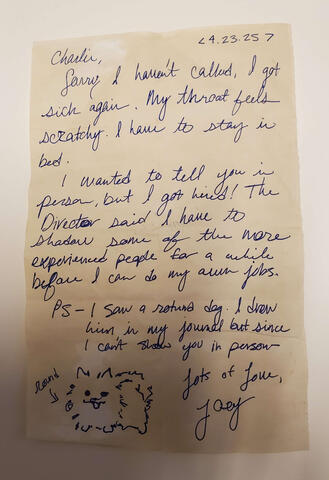 <4.23.25>
Charlie,
Sorry I haven't called, I got
sick again. My throat feels
scratchy. I have to stay in
bed.
I wanted to tell you in
person, but I got hired! The
Director said I have to
shadow some of the more
experienced people for a while
before I can do my own jobs.
PS - I saw a rotund dog. I drew
him in my journal but since
I can't show you in person
round
Lots of love,
Joey